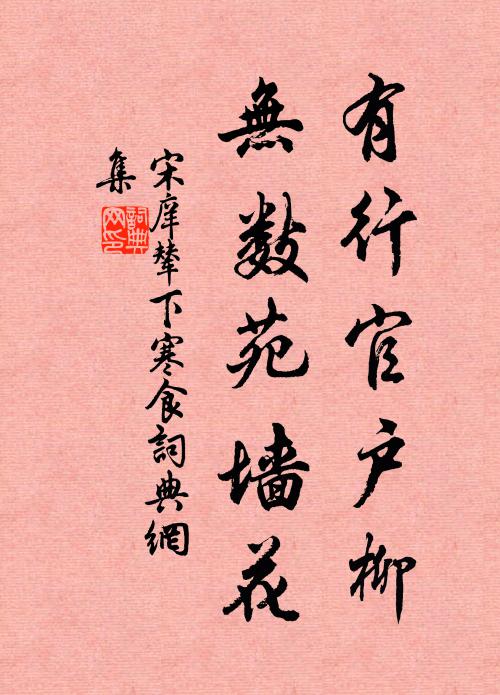 有行官户柳
無數苑墙花
宋庠輦下寒食詞典網
集
詞典
网印